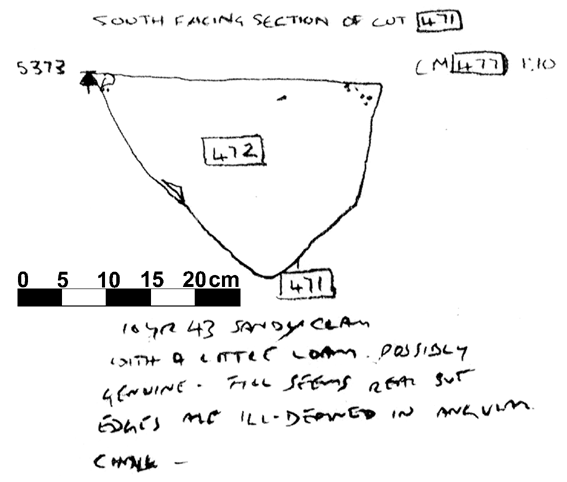 SOUTH FACING SECTION OF CUT 471
5373
CM 477 1:10
472
471
0 5 10 15 20 cm
10 YR 43 SANDY CLAY
WITH A LITTLE LOAM. POSSIBLY
GENUINE - FILL SEEMS REAL BUT
EDGES ARE ILL-DEFINED IN ANGULAR
CHALK -